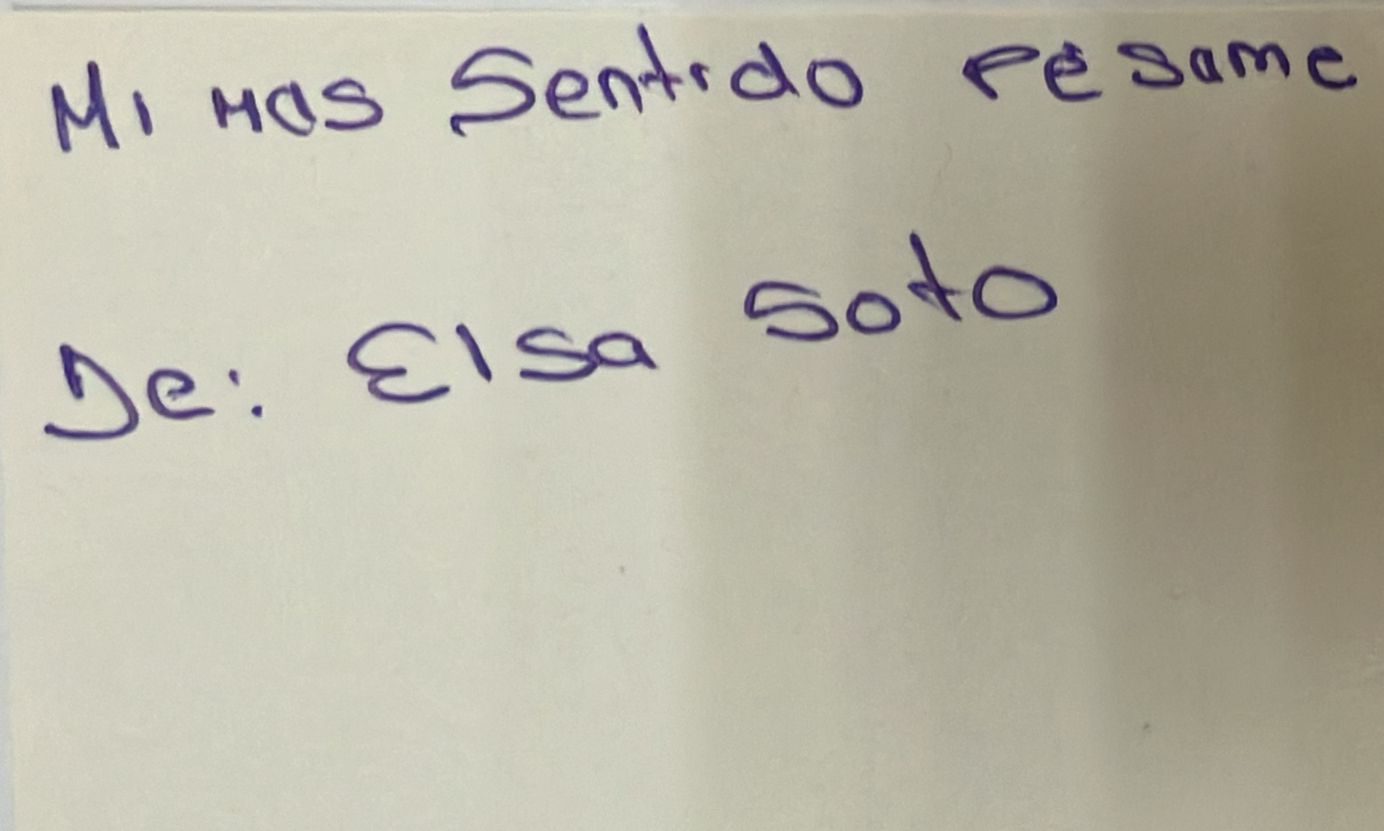 Mi mas Sentido pésame
De: Elsa Soto